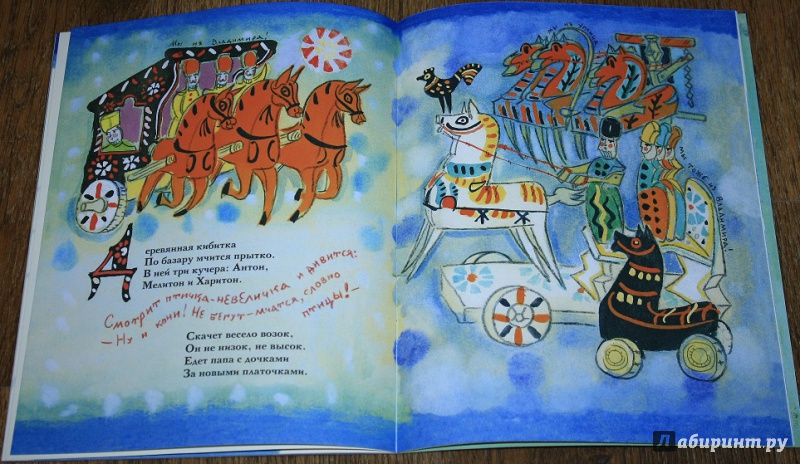 Мы из Владимира!
Деревянная кибитка
По базару мчится прытко.
В ней три кучера: Антон,
Мелитон и Харитон.
Смотрит птичка-невеличка и дивится:
– Ну и кони! Не бегут – мчатся, словно
птицы! –
Скачет весело возок,
Он не низок, не высок.
Едет папа с дочками
За новыми платочками.
Мы из
Мы тоже из Владимира!
Лабиринт.ру